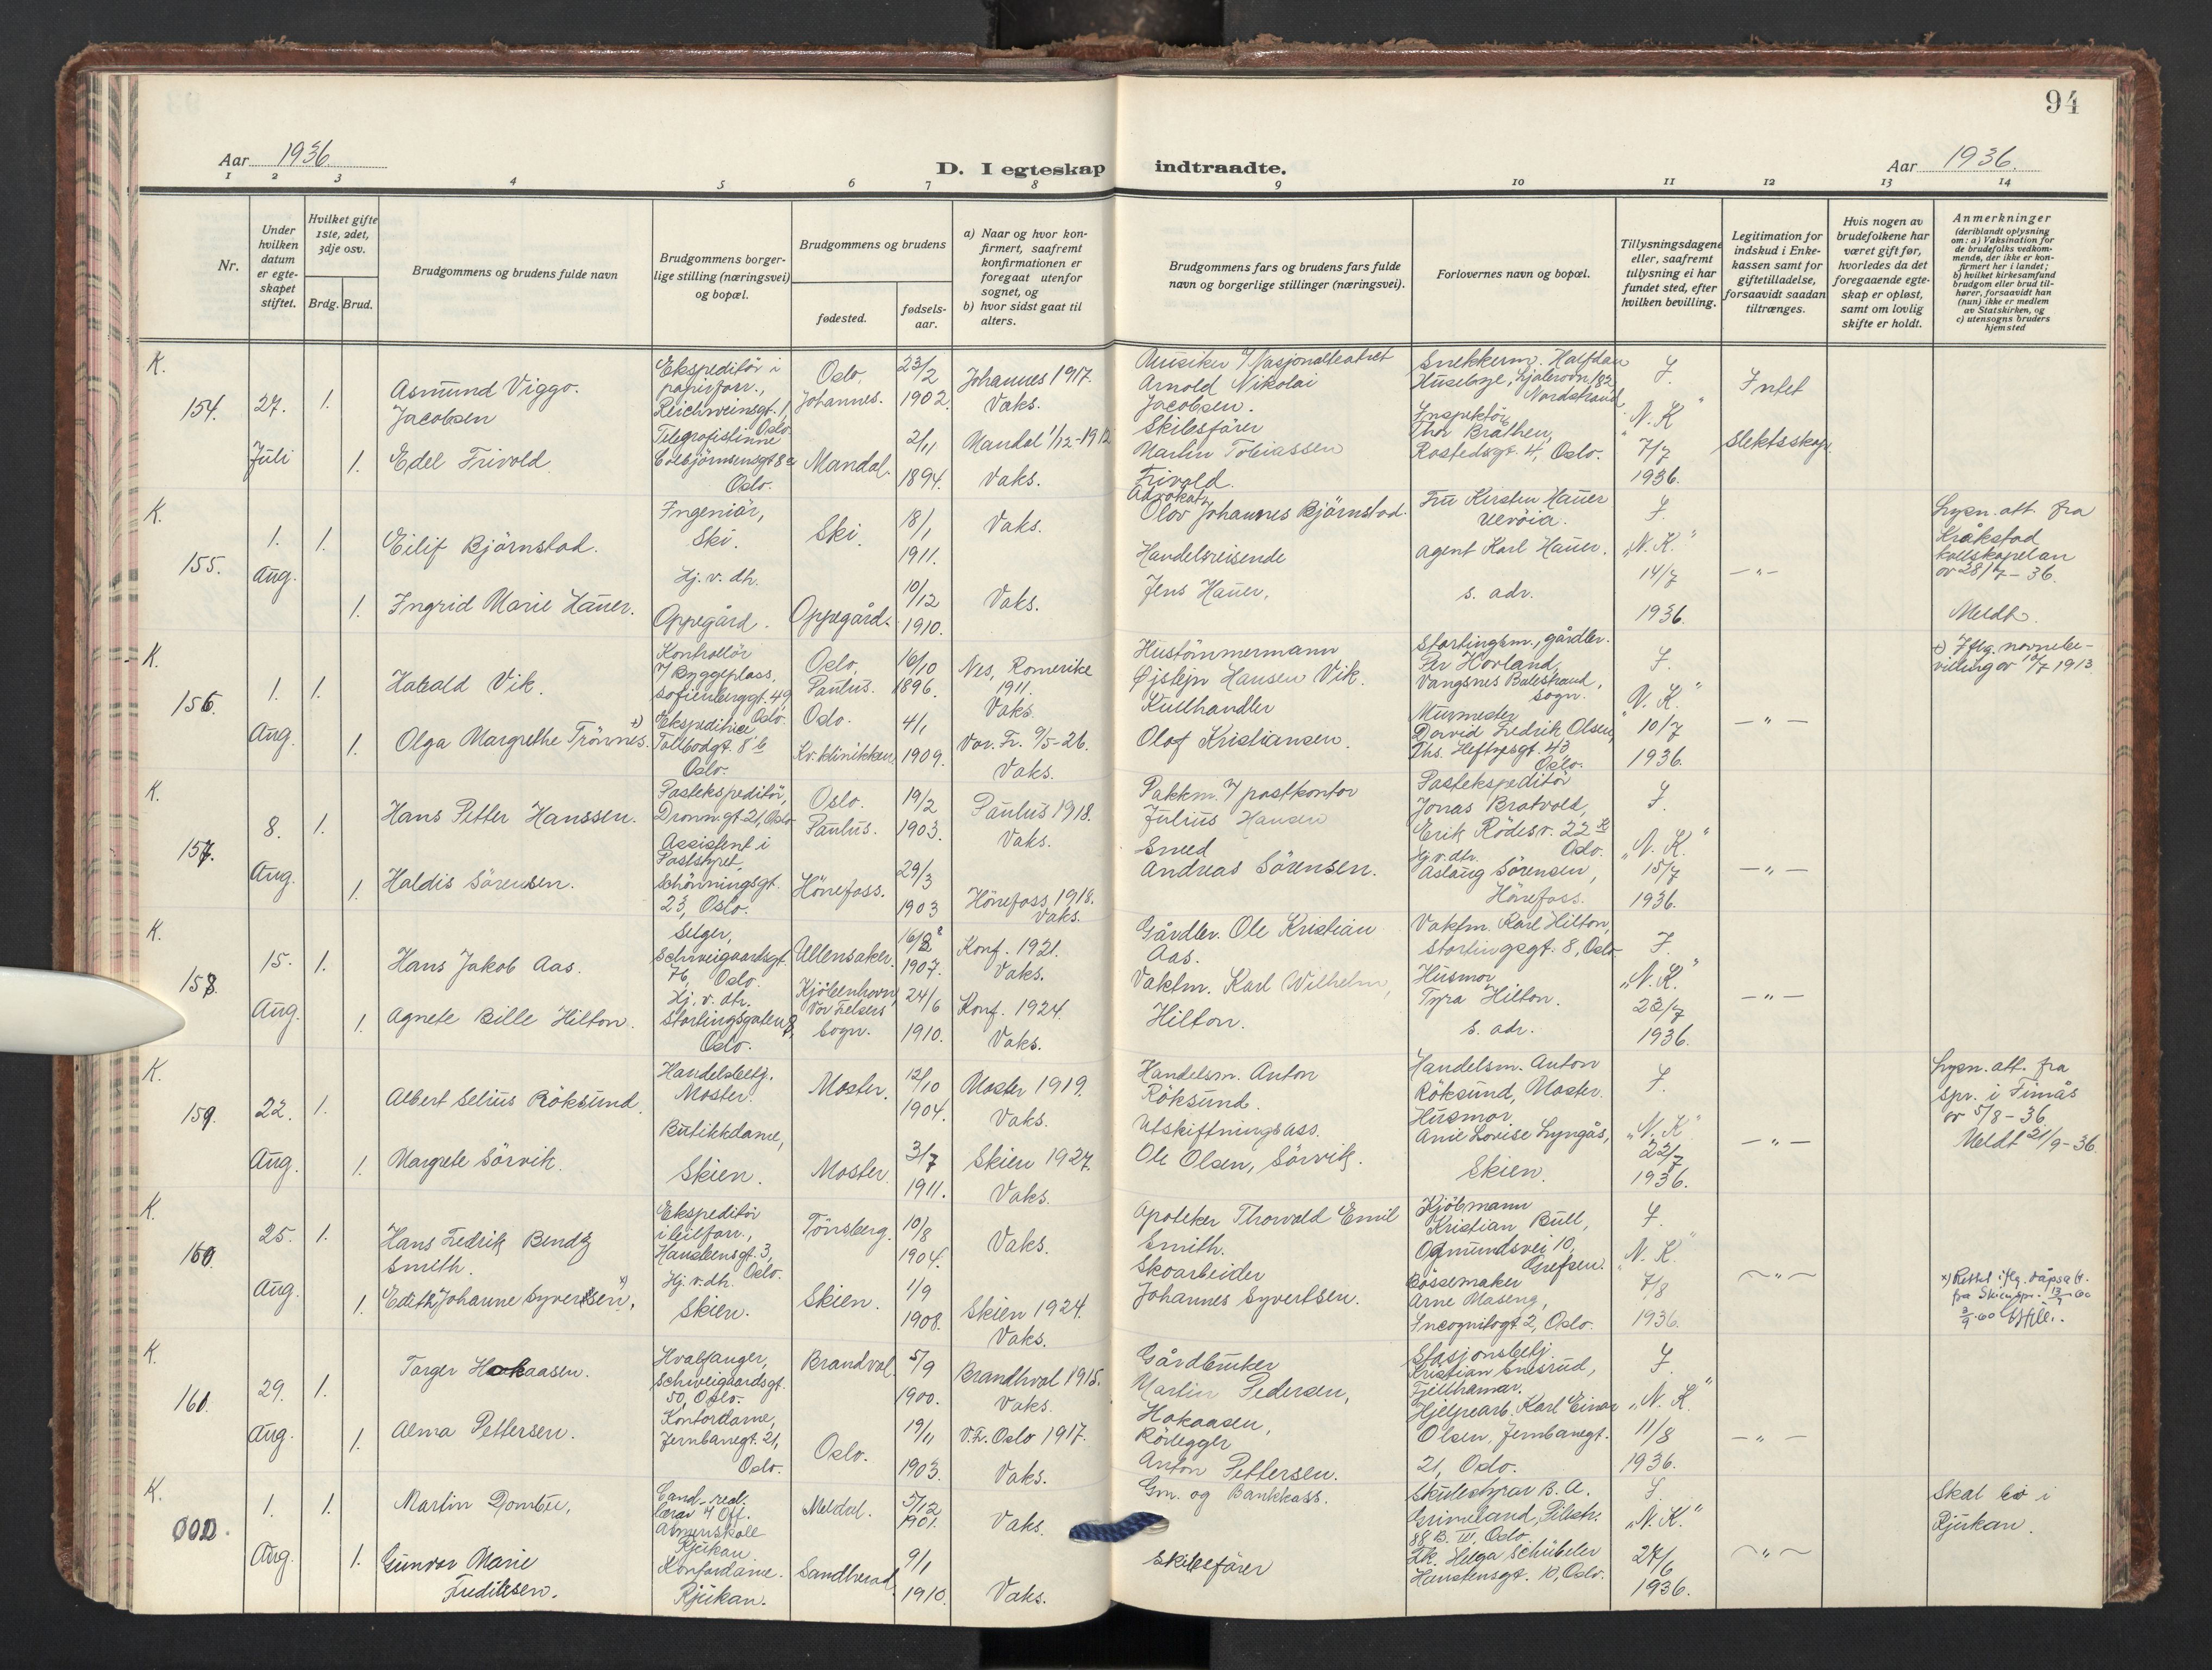 94
Aar 1936.
D. I egteskap indtraadte.
Aar 1936.
1 2 3 4 5 6 7 8 9 10 11 12 13 14
Nr.
Under hvilken datum er egteskapet stiftet.
Hvilket gifte 1ste, 2det, 3dje osv.
Brdg. Brud.
Brudgommens og brudens fulde navn
Brudgommens borgerlige stilling (næringsvei) og bopæl.
Brudgommens og brudens
fødested.
fødselsaar.
a) Naar og hvor konfirmert, saafremt konfirmationen er foregaat utenfor sognet, og
b) hvor sidst gaat til alters.
Brudgommens fars og brudens fars fulde navn og borgerlige stillinger (næringsvei).
Forlovernes navn og bopæl.
Tillysningsdagene eller, saafremt tillysning ei har fundet sted, efter hvilken bevilling.
Legitimation for indskud i Enkekassen samt for giftetilladelse, forsaavidt saadan tiltrænges.
Hvis nogen av brudefolkene har været gift før, hvorledes da det foregaaende egteskap er opløst, samt om lovlig skifte er holdt.
Anmerkninger
(deriblandt oplysning om: a) Vaksination for de brudefolks vedkommende, der ikke er konfirmert her i landet;
b) hvilket kirkesamfund brudgom eller brud tilhører, forsaavidt han (hun) ikke er medlem av Statskirken, og
c) utensogns bruders hjemsted
K.
154.
27. Juli
1.
Asmund Viggo Jacobsen
Ekspeditör i papirforr., Reichweinsgt. 1, Oslo.
Oslo, Johannes.
23/2 1902.
Johannes 1917. Vaks.
Musiker v/Nasjonalteatret Arnold Nikolai Jacobsen.
Snekkerm. Halfdan Huseby, Ljabrovn. 182, Nordstrand
1.
Edel Frivold
Telegrafistinne Oslo.
Mandal.
2/11 1894.
Mandal 1/12-1912 Vaks.
Skibsförer Martin Tobiassen Frivold.
Inspektör Thor Bråthen, Rostedsgt. 4, Oslo.
F. "N. K" 7/7 1936.
Intet Slektsskap.
K.
155.
1. Aug.
1.
Eilif Björnstad.
Ingeniör, Ski.
Ski.
18/1 1911.
Vaks.
Advokat Olov Johannes Björnstad.
Fru Kirsten Hauer
1.
Ingrid Marie Hauer.
Hj. v. dh. Oppegård.
Oppegård.
10/12 1910.
Vaks.
Handelsreisende Jens Hauer.
Agent Karl Hauer, s. adr.
F. "N. K." 14/7 1936.
— " —
Lysn. att. fra Kråkstad av 28/7 - 36.
Meldt.
K.
156.
1. Aug.
1.
Harald Vik.
Kontrollör v/Byggeplass, Sofienberggt. 49, Oslo.
Oslo, Paulus.
16/10 1896.
Nes, Romerike 1911. Vaks.
Hustömmermann Øjstejn Hansen Vik.
Stortingsm., gårdbr. Per Hovland, Vangsnes Balestrand, Sogn.
1.
Olga Margrethe Trönnes. +)
Ekspeditrice Tollbodgt. 8 b Oslo.
Oslo. Kv. klinikken
4/1 1909.
Vor. Fr. 9/5-26. Vaks.
Kullhandler Olaf Kristiansen.
Murmester David Fredrik Olsen, Ths. Heftyesgt. 43 Oslo.
F. "N. K." 10/7 1936.
— " —
+) Iflg. navnebevilling av 10/7 1913
K.
157.
8. Aug.
1.
Hans Petter Hanssen.
Postekspeditör, Dronn.gt. 21, Oslo
Oslo. Paulus.
19/2 1903.
Paulus 1918. Vaks.
Pakkm. v/postkontor Julius Hansen
Postekspeditör Jonas Bratvold, Erik Rödesv. 22 Oslo.
1.
Haldis Sörensen.
Assistent i Poststyret Schönningsgt. 23, Oslo.
Hönefoss.
29/3 1903
Hönefoss 1918. Vaks.
Smed Andreas Sörensen.
Hj. v. dh. Aslaug Sörensen, Hönefoss.
F. "N. K." 15/7 1936.
— " —
K.
158
15. Aug.
1.
Hans Jakob Aas.
Selger, Schweigaardsgt. 76, Oslo.
Ullensaker.
16/8 1907.
Konf. 1921. Vaks.
Gårdbr. Ole Kristian Aas.
Vaktm. Karl Hilton, Stortingsgt. 8, Oslo
1.
Agnete Bille Hilton.
Hj. v. dh. Stortingsgaten 8, Oslo.
Kjöbenhavn, Vor Frelsers sogn.
24/6 1910.
Konf. 1924. Vaks.
Vaktm. Karl Wilhelm Hilton.
Husmor Tyra Hilton. s. adr.
F. "N. K." 23/7 1936.
— " —
K.
159.
22. Aug.
1.
Albert Selius Röksund.
Handelsbetj. Moster.
Moster.
12/10 1904.
Moster 1919. Vaks.
Handelsm. Anton Röksund.
Handelsm. Anton Röksund, Moster.
1.
Margrete Sörvik.
Butikkdame, Skien.
Moster.
3/7 1911.
Skien 1927. Vaks.
Utskiftningsass. Ole Olsen, Sörvik.
Husmor Anie Lovise Lyngås, Skien.
F. "N. K" 22/7 1936.
— " —
Lysn. att. fra spr. i Finnås av 5/8 - 36.
Meldt 21/9 - 36.
K.
160.
25. Aug.
1.
Hans Fredrik Bendz Smith.
Ekspeditör i bilforr., Hansteensgt. 3, Oslo.
Tönsberg.
10/8 1904.
Vaks.
Apoteker Thorvald Emil Smith.
Kjöbmann Kristian Bull, Ogmundsvei 10, Grefsen.
1.
Edith Johanne Syvertsen, x)
Hj. v. dh. Skien.
Skien.
1/9 1908.
Skien 1924. Vaks.
Skoarbeider Johannes Syvertsen.
Bössemaker Arne Maseng, Incognitogt 2, Oslo.
F. "N. K." 7/8 1936.
— " —
x) Rettet iflg. dåpsatt. fra Skien spr.
K.
161.
29. Aug.
1.
Torger Hokaasen.
Hvalfanger, Schweigaardsgt. 50, Oslo.
Brandval
5/9 1900.
Brandval 1915. Vaks.
Gårdbruker Martin Pedersen, Hokaasen,
Stasjonsbetj. Kristian Snesrud, Fjellhamar.
1.
Alma Pettersen.
Kontordame, Jernbanegt. 21, Oslo.
Oslo.
19/11 1903.
V. Fr. Oslo 1917. Vaks.
Rörlegger Anton Pettersen.
Hjelpearb. Karl Einar Olsen, Jernbanegt. 21, Oslo.
F. "N. K." 11/8 1936.
— " —
K.
1. Aug.
1.
Martin Dombu,
Cand. real. lærar v/ Off. Almenskole Rjukan
Meldal.
5/12 1901.
Vaks.
Gm. og Bankkass.
Skulestyrar B. A. Grimeland, Pilestr. 88 B. III, Oslo.
1.
Gunvor Marie
Kontordame. Rjukan.
Sandherad
9/1 1910.
Vaks.
Skibsförer
Frk. Helga Schübeler Hanstensgt. 10, Oslo.
F "N. K." 27/6 1936.
— " —
Skal bo i Rjukan.